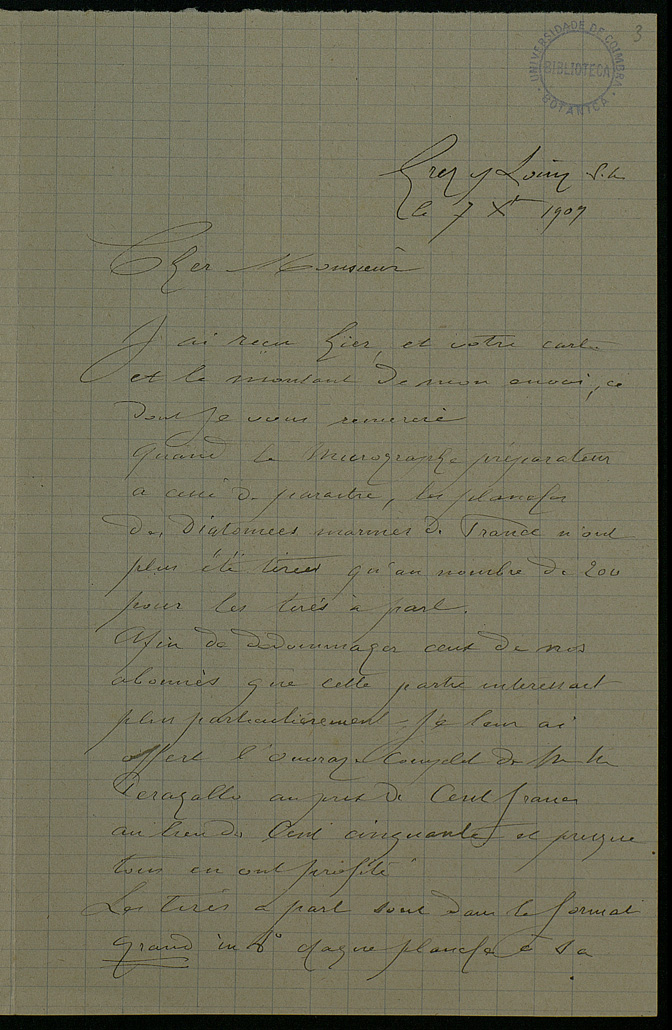 3
UNIVERSIDADE DE COIMBRA
BIBLIOTECA
BOTANICA
Grez s/ Loing S. M.
le 7 Xbre 1907
Cher Monsieur
J'ai reçu hier, et votre carte
et le montant de mon envoi, ce
dont je vous remercie
Quand le Micrographe préparateur
a cessé de paraitre, les planches
des Diatomées marines de France n'ont
plus été tirées qu'au nombre de 200
pour les tirés à part.
Afin de dédommager ceux de nos
abonnés que cette partie interessait
plus particulièrement je leur ai
offert l'ouvrage complet de M M
Peragallo au prix de Cent francs
au lieu de Cent cinquante et presque
tous en ont profité
Les tirés à part sont dans le format
grand in 8° chaque planche a sa